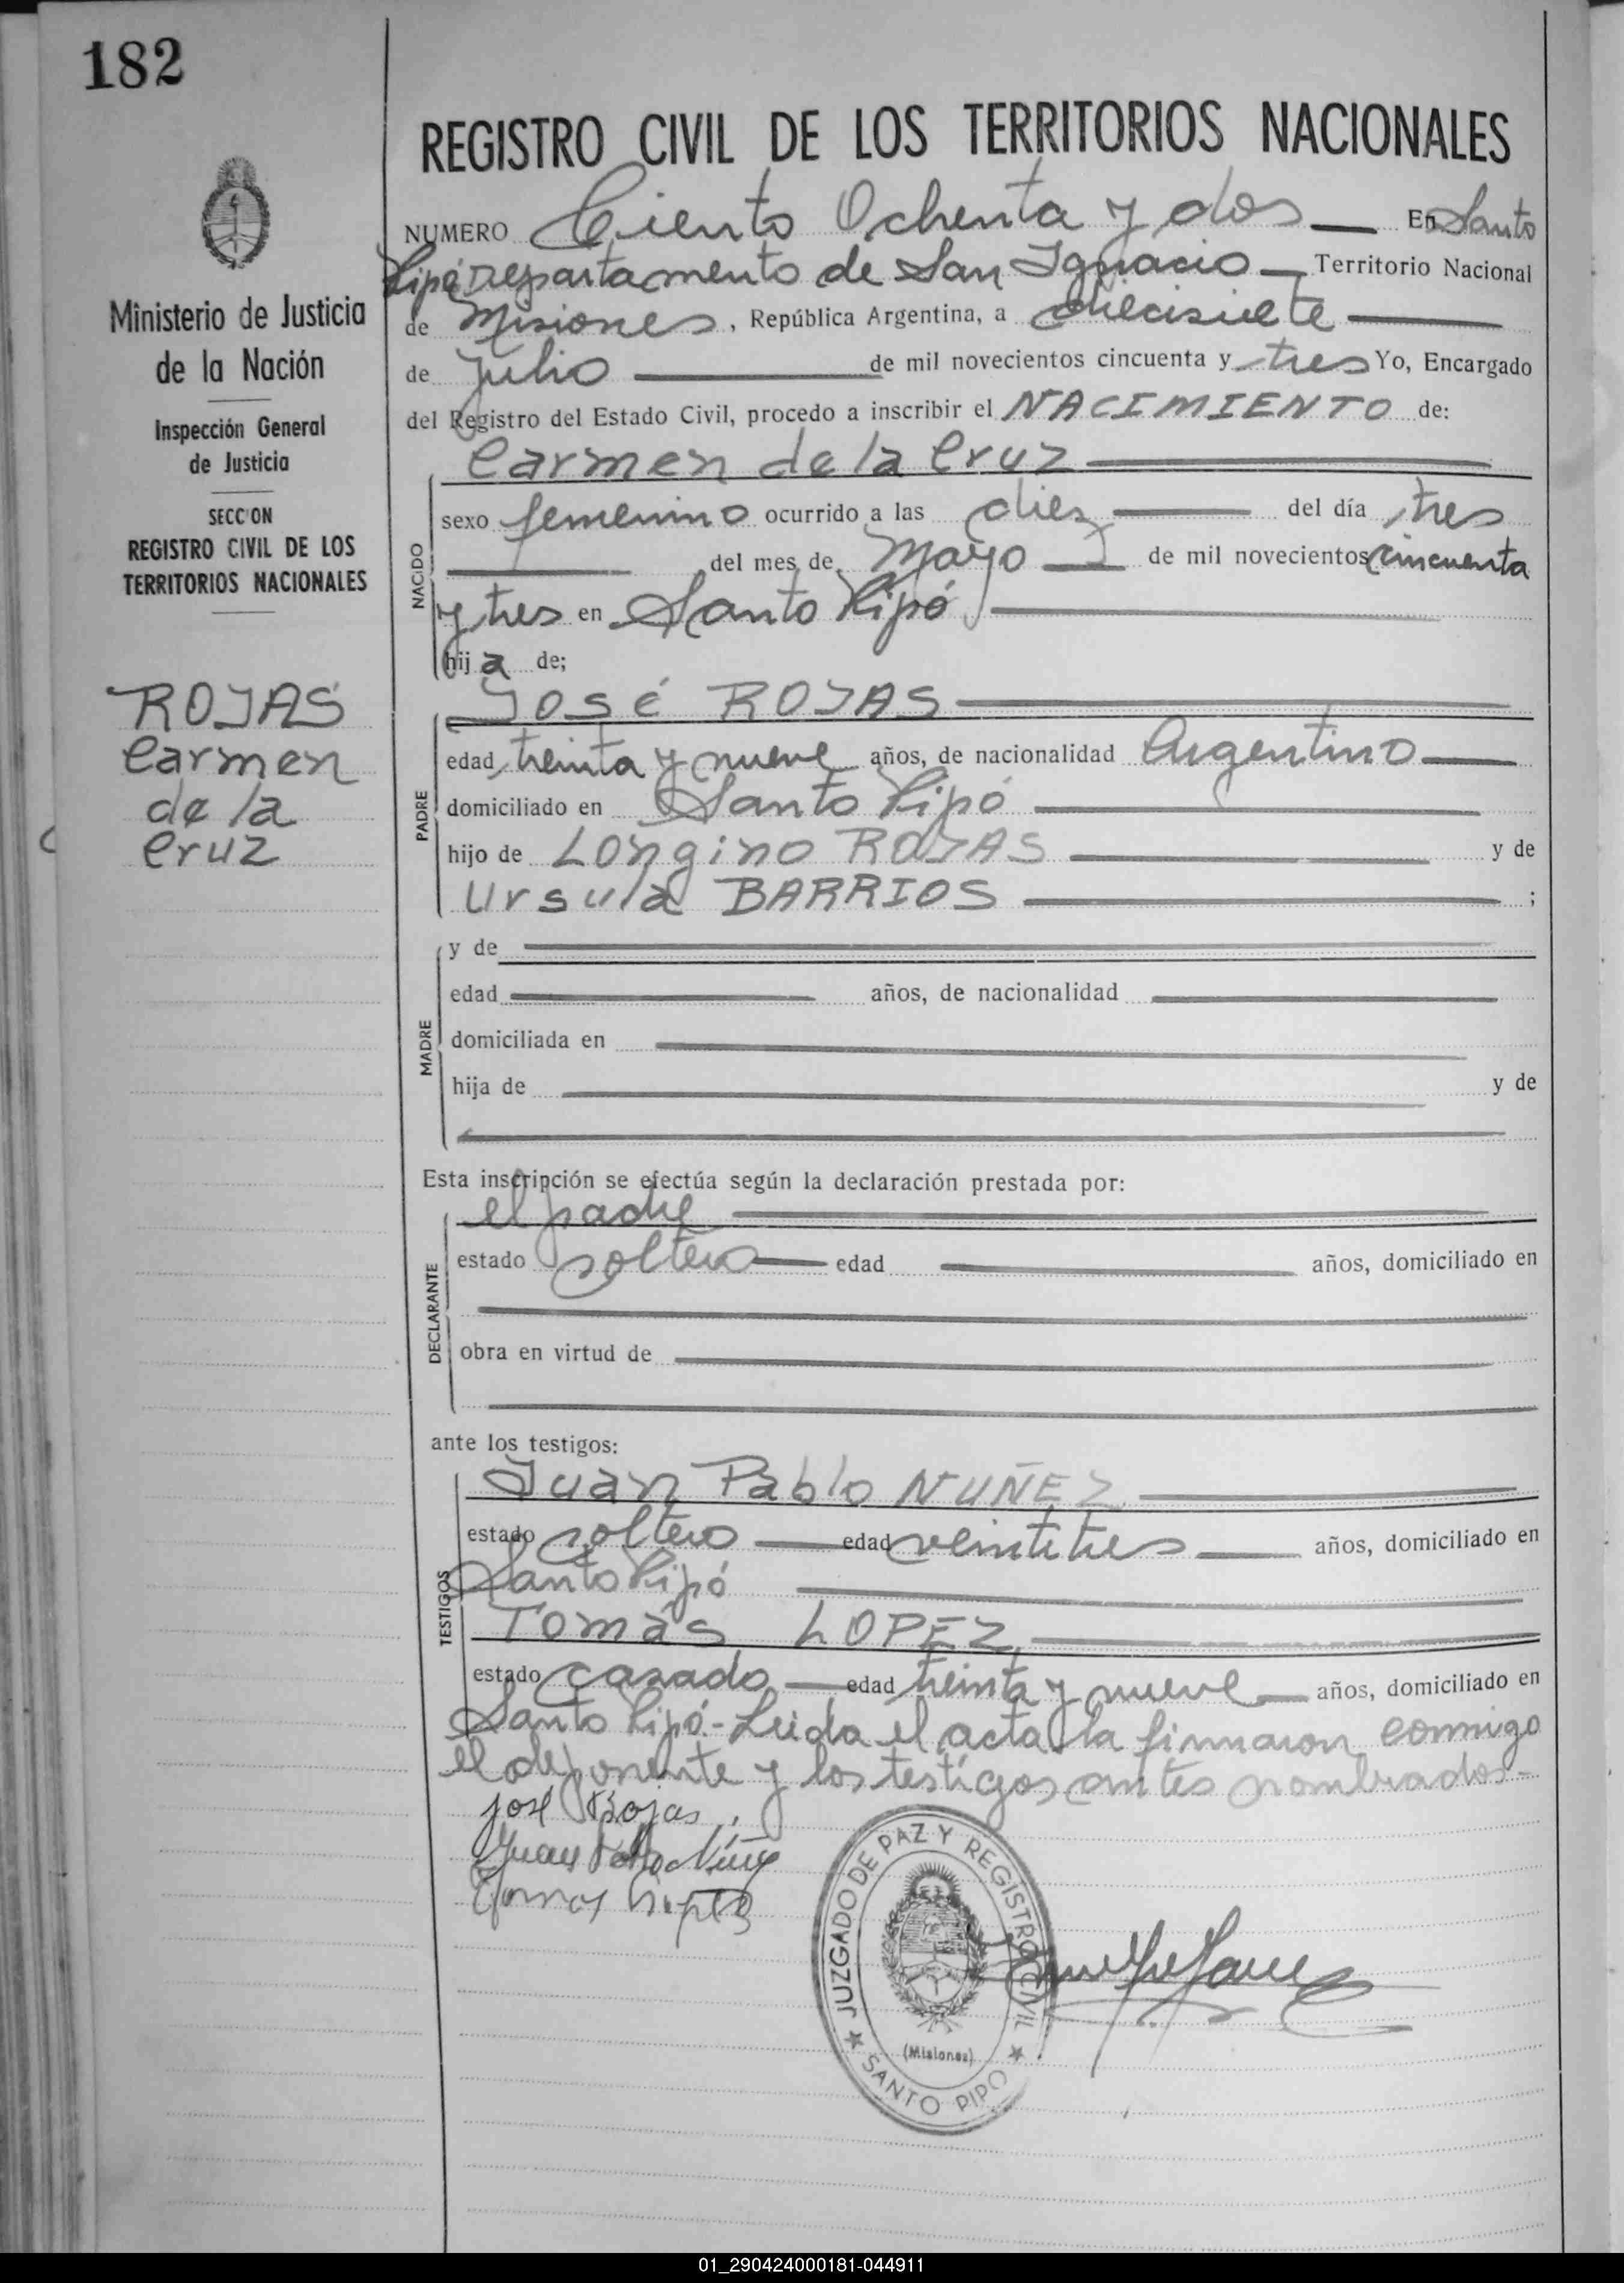 182
Ministerio de Justicia
de la Nación
Inspección General
de Justicia
SECC'ON
REGISTRO CIVIL DE LOS
TERRITORIOS NACIONALES
ROJAS
Carmen
de la
Cruz
REGISTRO CIVIL DE LOS TERRITORIOS NACIONALES
NUMERO Ciento Ochenta y dos En Santo
Pipó Departamento de San Ignacio Territorio Nacional
de Misiones, República Argentina, a diecisiete
de Julio de mil novecientos cincuenta y tres Yo, Encargado
del Registro del Estado Civil, procedo a inscribir el NACIMIENTO de:
Carmen de la Cruz
NACIDO
sexo femenino ocurrido a las diez del día tres
del mes de Mayo de mil novecientos cincuenta
y tres en Santo Pipó
hija de;
José ROJAS
PADRE
edad treinta y nueve años, de nacionalidad Argentino
domiciliado en Santo Pipó
hijo de Longino ROJAS y de
Ursula BARRIOS ;
MADRE
y de
edad años, de nacionalidad
domiciliada en
hija de y de
Esta inscripción se efectúa según la declaración prestada por:
el padre
DECLARANTE
estado soltero edad años, domiciliado en
obra en virtud de
ante los testigos:
Juan Pablo NUÑEZ
TESTIGOS
estado soltero edad veintitres años, domiciliado en
Santo Pipó
Tomás LOPEZ
estado casado edad treinta y nueve años, domiciliado en
Santo Pipó.- Leida el acta la firmaron conmigo
el deponente y los testigos antes nombrados-
José Rojas
Juan Pablo Núñez
Tomas Lopez
JUZGADO DE PAZ Y REGISTRO CIVIL
(Misiones)
SANTO PIPO
01_290424000181-044911